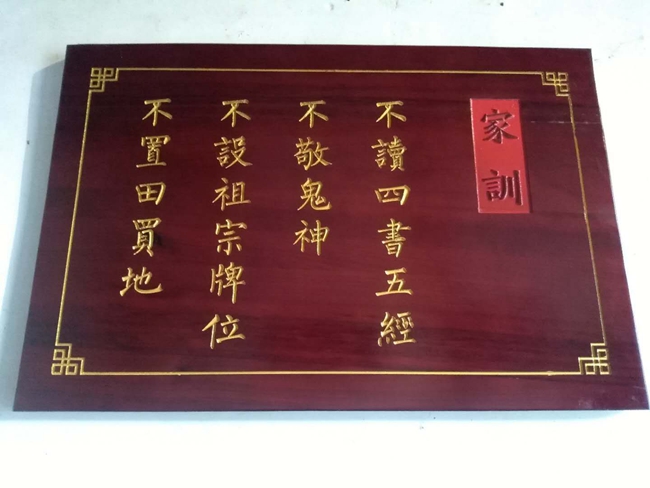 家訓
不讀四書五經
不敬鬼神
不設祖宗牌位
不置田買地